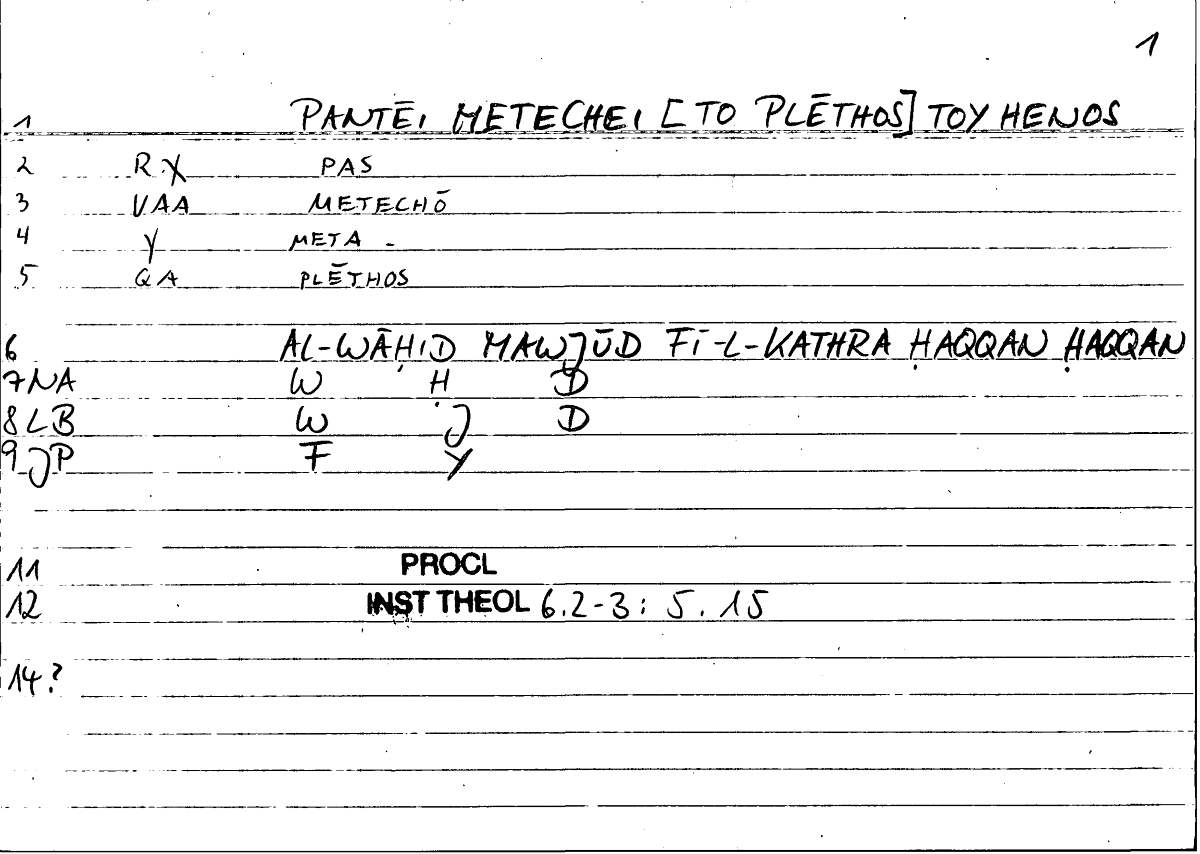 1
1 PANTĒI METECHEI [TO PLĒTHOS] TOY HENOS
2 RX PAS
3 VAA METECHŌ
4 Y META -
5 QA PLĒTHOS
6 AL-WĀḤID MAWJŪD FĪ-L-KATHRA ḤAQQAN ḤAQQAN
7 NA W Ḥ D
8 LB W J D
9 JP F Y
11 PROCL
12 INST THEOL 6.2-3: 5. 15
14?